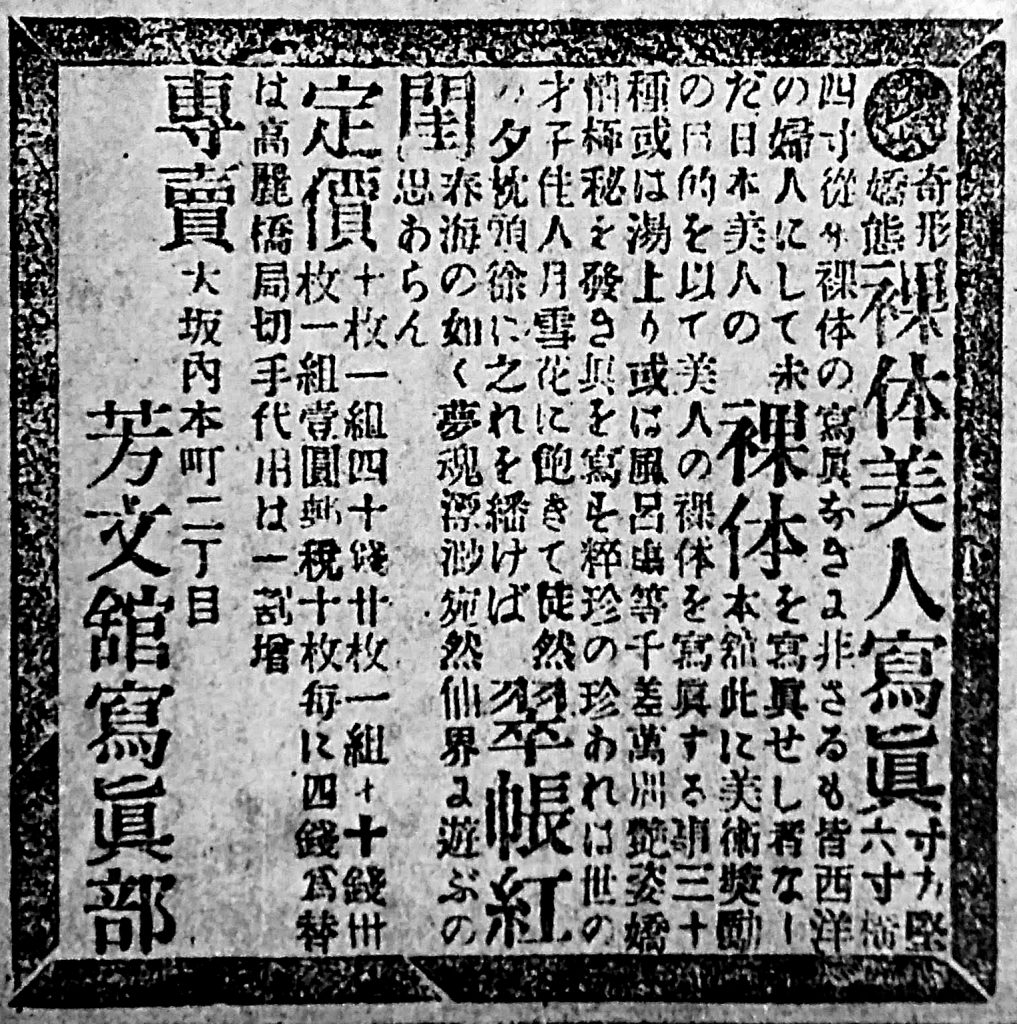 奇形嬌態裸体美人寫眞寸方堅六寸横
四寸從來裸体の寫眞なきに非さるも皆西洋
の婦人にして未を寫眞せし者なし
だ日本美人の裸体本舘此に美術奬勵
の目的を以て美人の裸体を寫眞する事三十
種或は湯上り或は風呂出等千差萬別艶姿嬌
情極秘を發き眞を寫す粹珍の珍あれは世の
才子佳人月雪花に飽きて徒然
の夕枕頭徐に之れを繙けば帳紅
閨春海の如く夢魂漂渺宛然仙界に遊ぶの
思あらん
定價十枚一組四十錢廿枚一組十錢卅
枚一組壹圓郵税十枚毎に四錢爲替
は高麗橋局切手代用は一割増
專賣大坂内本町二丁目
芳文舘寫眞部